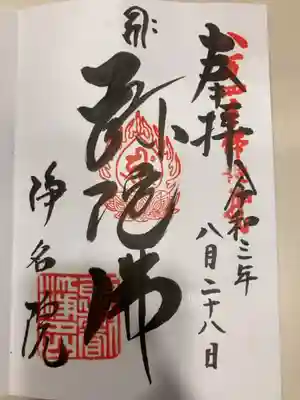 奉拝
令和三年
八月二十八日
弥陀佛
浄名院